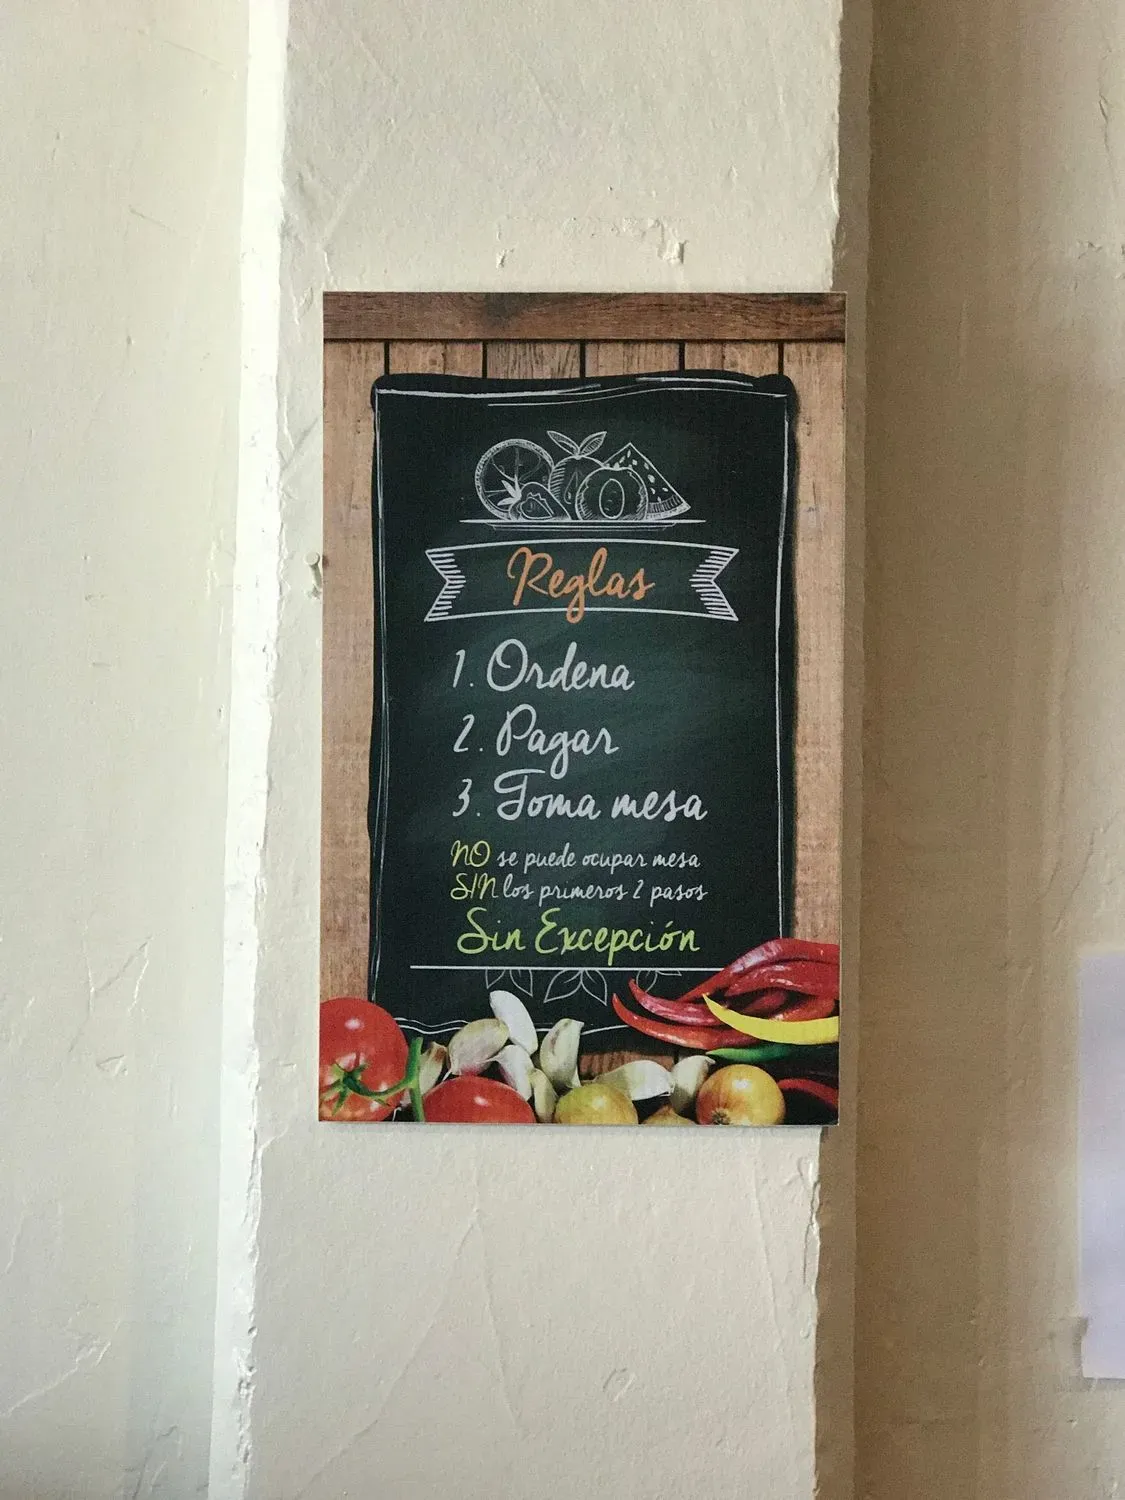 Reglas
1. Ordena
2. Pagar
3. Toma mesa
NO se puede ocupar mesa
SIN los primeros 2 pasos
Sin Excepción